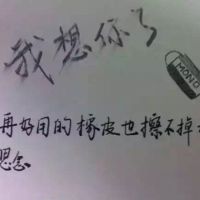 我想你了
MONO
再好用的橡皮也擦不掉
思念